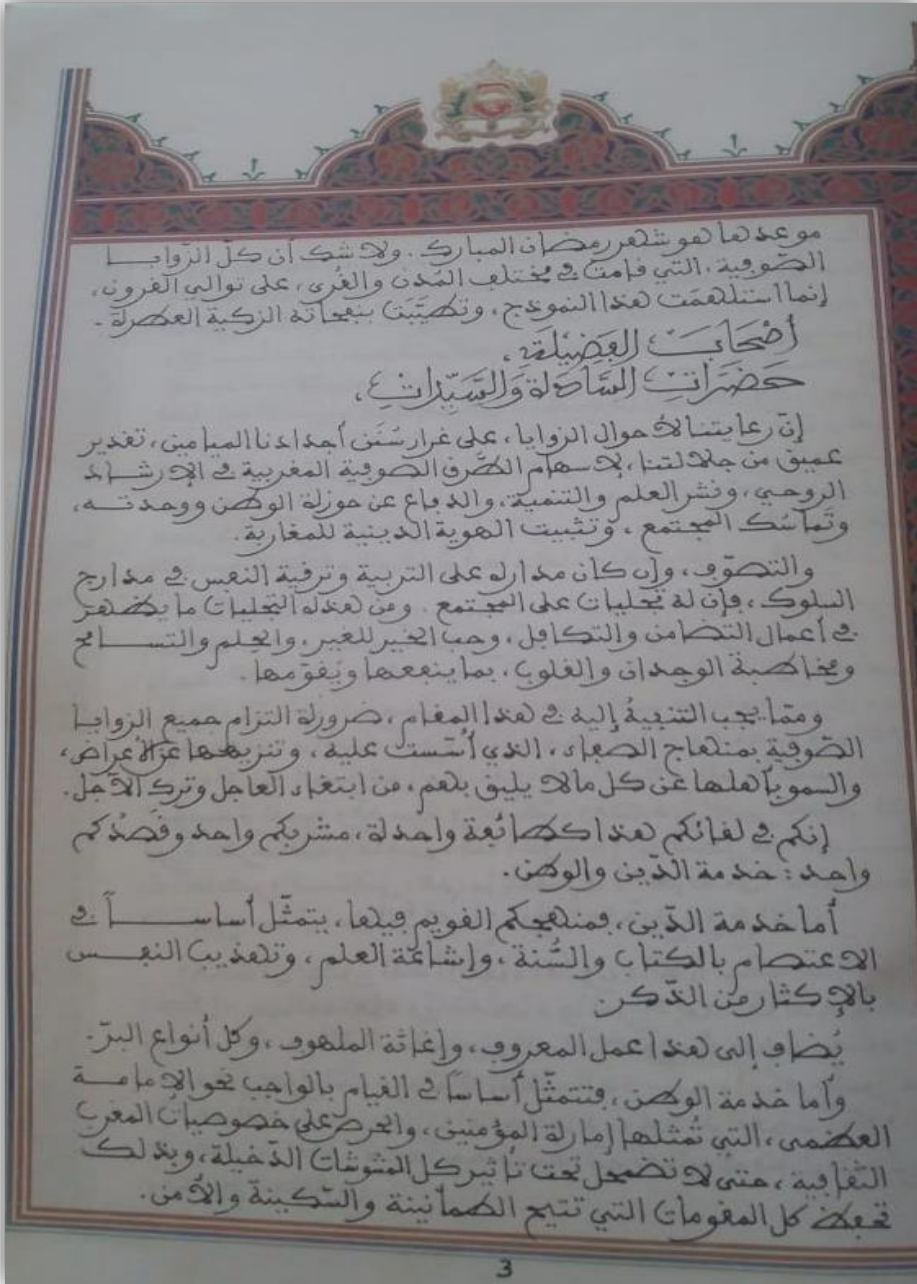 موعدها هو شهر رمضان المبارك. ولا شك أن كلّ الزّوايا
الصّوفية، التي قامت في مختلف المُدن والقُرى، على توالي القرون،
إنما استلهمَت هذا النموذج، وتطيّبَت بنفحاته الزكية العطرة.
أصْحَابَ الفَضِيلَةِ،
حَضَرَاتِ السَّادَةِ وَالسَّيِّدَاتِ،
إنّ رعايتنا لأحوال الزوايا، على غرار سُنَن أجدادنا الميامين، تقدير
عميق من جلالتنا، لإسهام الطُّرق الصوفية المغربية في الإرشاد
الروحي، ونشر العلم والتنمية، والدفاع عن حوزة الوطن ووحدته،
وتَماسُك المجتمع، وتثبيت الهوية الدينية للمغاربة.
والتصوّف، وإن كان مداره على التربية وترقية النفس في مدارج
السلوك، فإن له تجليات على المجتمع. ومن هذه التجليات ما يظهر
في أعمال التضامن والتكافل، وحب الخير للغير، والحلم والتسامح
ومخاطبة الوجدان والقلوب، بما ينفعها ويُقوّمها.
وممّا يجب التنبيهُ إليه في هذا المقام، ضرورة التزام جميع الزوايا
الصّوفية بمنهاج الصفاء، الذي أسّست عليه، وتنزيهها عن الأعراض،
والسمو بأهلها عن كل ما لا يليق بهم، من ابتغاء العاجل وترك الآجل.
إنكم في لقائكم هذا كطائفة واحدة، مشربكم واحد وقصْدُكم
واحد: خدمة الدّين والوطن.
أما خدمة الدّين، فمنهجكم القويم فيها، يتمثّل أساساً في
الاعتصام بالكتاب والسُّنة، وإشاعة العلم، وتهذيب النفس
بالإكثار من الذّكر.
يُضاف إلى هذا عمل المعروف، وإغاثة الملهوف، وكل أنواع البرّ.
وأما خدمة الوطن، فتتمثّل أساساً في القيام بالواجب نحو الإمامة
العظمى، التي تمثلها إمارة المؤمنين، والحرص على خصوصيات المغرب
الثقافية، حتى لا تضمحل تحت تأثير كل المشوشات الدّخيلة، وبذلك
تحفظ كل المقومات التي تتيح الطمأنينة والسّكينة والأمن.
3